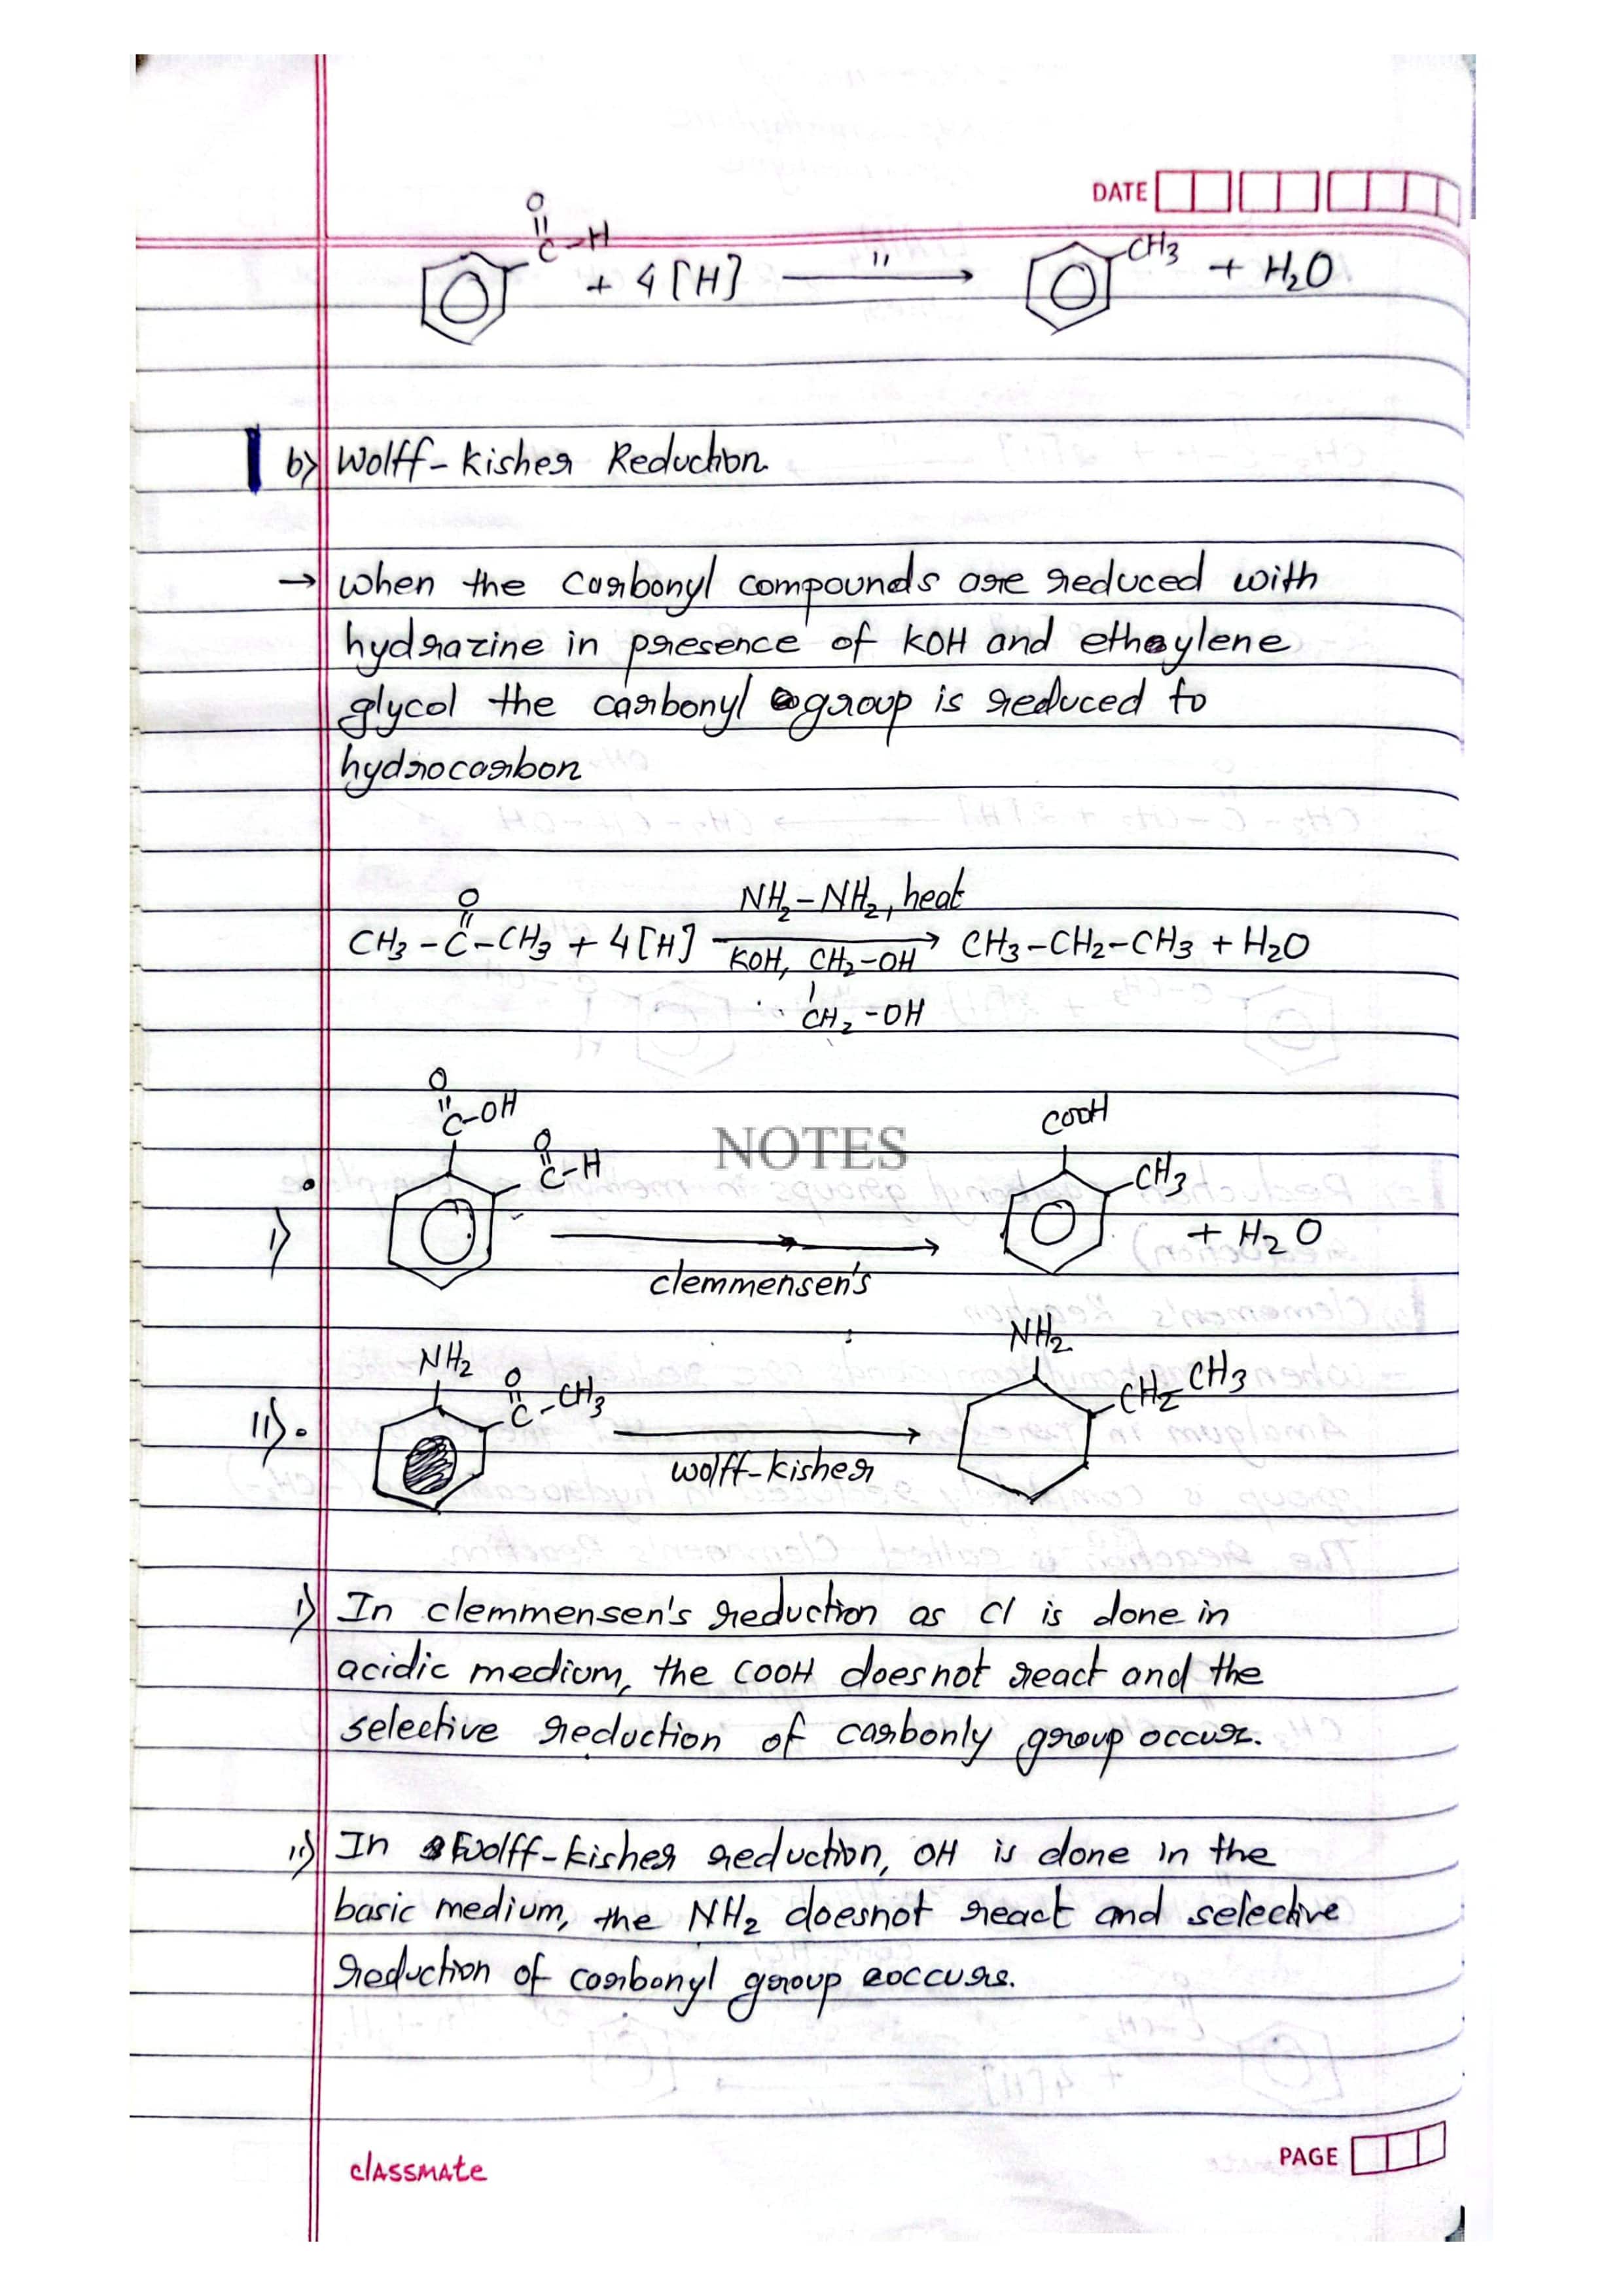 DATE
O
||
C-H
+ 4[H] —"→ CH3 + H2O
b) Wolff-kisher Reduction
→ when the carbonyl compounds are reduced with
hydrazine in presence of KOH and etheylene
glycol the carbonyl group is reduced to
hydrocarbon
O NH2-NH2, heat
||
CH3-C-CH3 + 4[H] → CH3-CH2-CH3 + H2O
KOH, CH2-OH
|
CH2-OH
O
||
C-OH COOH
NOTES
O
||
C-H CH3
i) → + H2O
clemmensen's
NH2 NH2
O
||
C-CH3 CH2-CH3
ii) →
wolff-kisher
i) In clemmensen's reduction as Cl is done in
acidic medium, the COOH doesnot react and the
selective reduction of carbonly group occur.
ii) In Wolff-kisher reduction, OH is done in the
basic medium, the NH2 doesnot react and selective
reduction of carbonyl group occurs.
classmate
PAGE